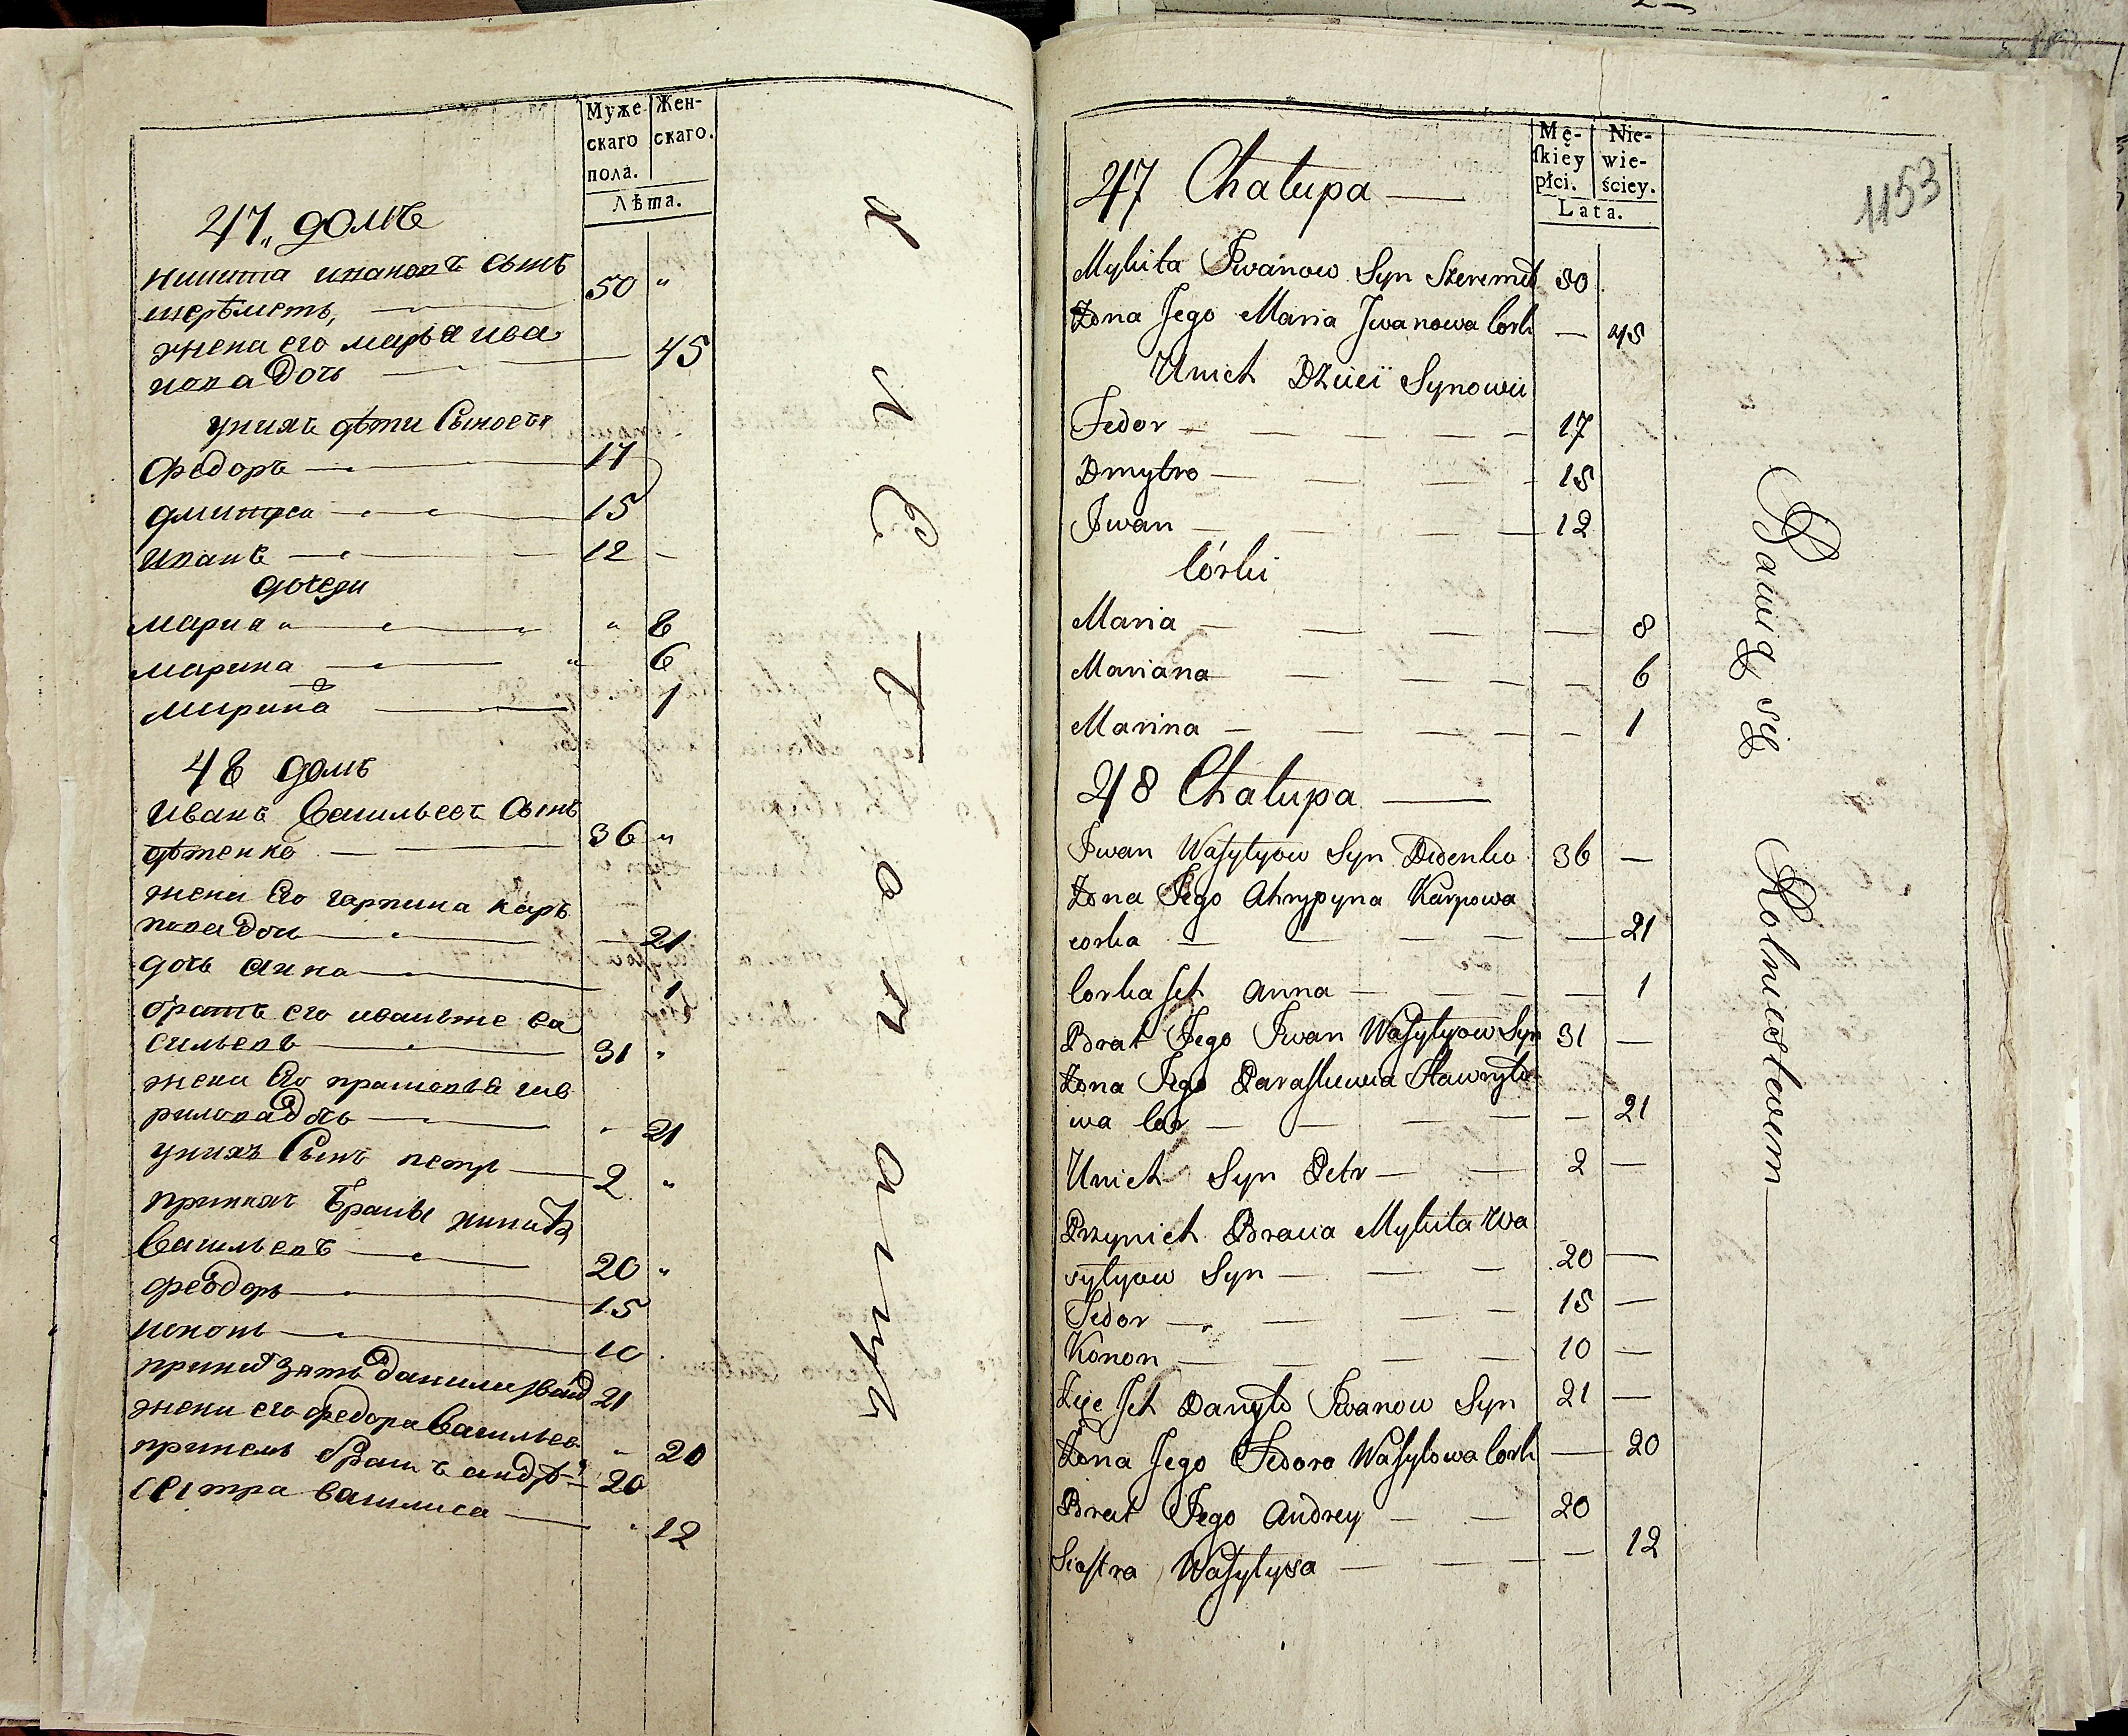 Муже Жен-
скаго скаго.
пола.
Лѣта.
47 домъ
никита ивановъ сынъ
шерѣметъ, 50 "
жена его марья ива
нова дочь 45
у нихъ дѣти Сыновья
Федоръ 17
дмитро 15
иванъ 12 -
дочери
мариа " " 8
марьана " 6
марина 1
48 домъ
иванъ Васильевъ Сынъ
дѣденко 36 "
жена Его гарпина карь
пова доч 21
дочь анна 1
братъ его иванъже ва
сильевъ 31 "
жена Его прасковья гав
рилова доч 21
у нихъ Сынъ петръ 2 "
при нихъ браты никита
Васильевъ 20 "
феодоръ 15
кононъ 10
зять данило иванов 21
жена его федора Васильев " 20
братъ андрѣй 20
сестра василиса " 12
Mę- Nie-
ſkiéy wie-
płci. ściey.
Lata.
1153
47 Chałupa
Mykita Jwanow Syn Szeremet 50
Żona Jego Maria Jwanowa Cork — 45
Unich Dzieci Synowii
Fedor 17
Dmytro 15
Jwan 12
Córki
Maria 8
Mariana 6
Marina 1
48 Chałupa
Jwan Wasylyow Syn Didenko 36 —
Żona Jego Ahrypyna Karpowa
corka 21
Corka Jch Anna 1
Brat Jego Jwan Wasylyow Syn 31 —
Żona Jego Paraskiewia Hawryło
wa Cor 21
Unich Syn Petr 2 —
Przynich Bracia Mykita Wa
sylyow Syn 20 —
Fedor 15 —
Konon 10 —
Zięć Jch Danyło Jwanow Syn 21 —
Żona Jego Fedora Wasylowa Cork — 20
Brat Jego Andrey 20
Siostra Wasylysa 12
Bawią się Rolnictwem